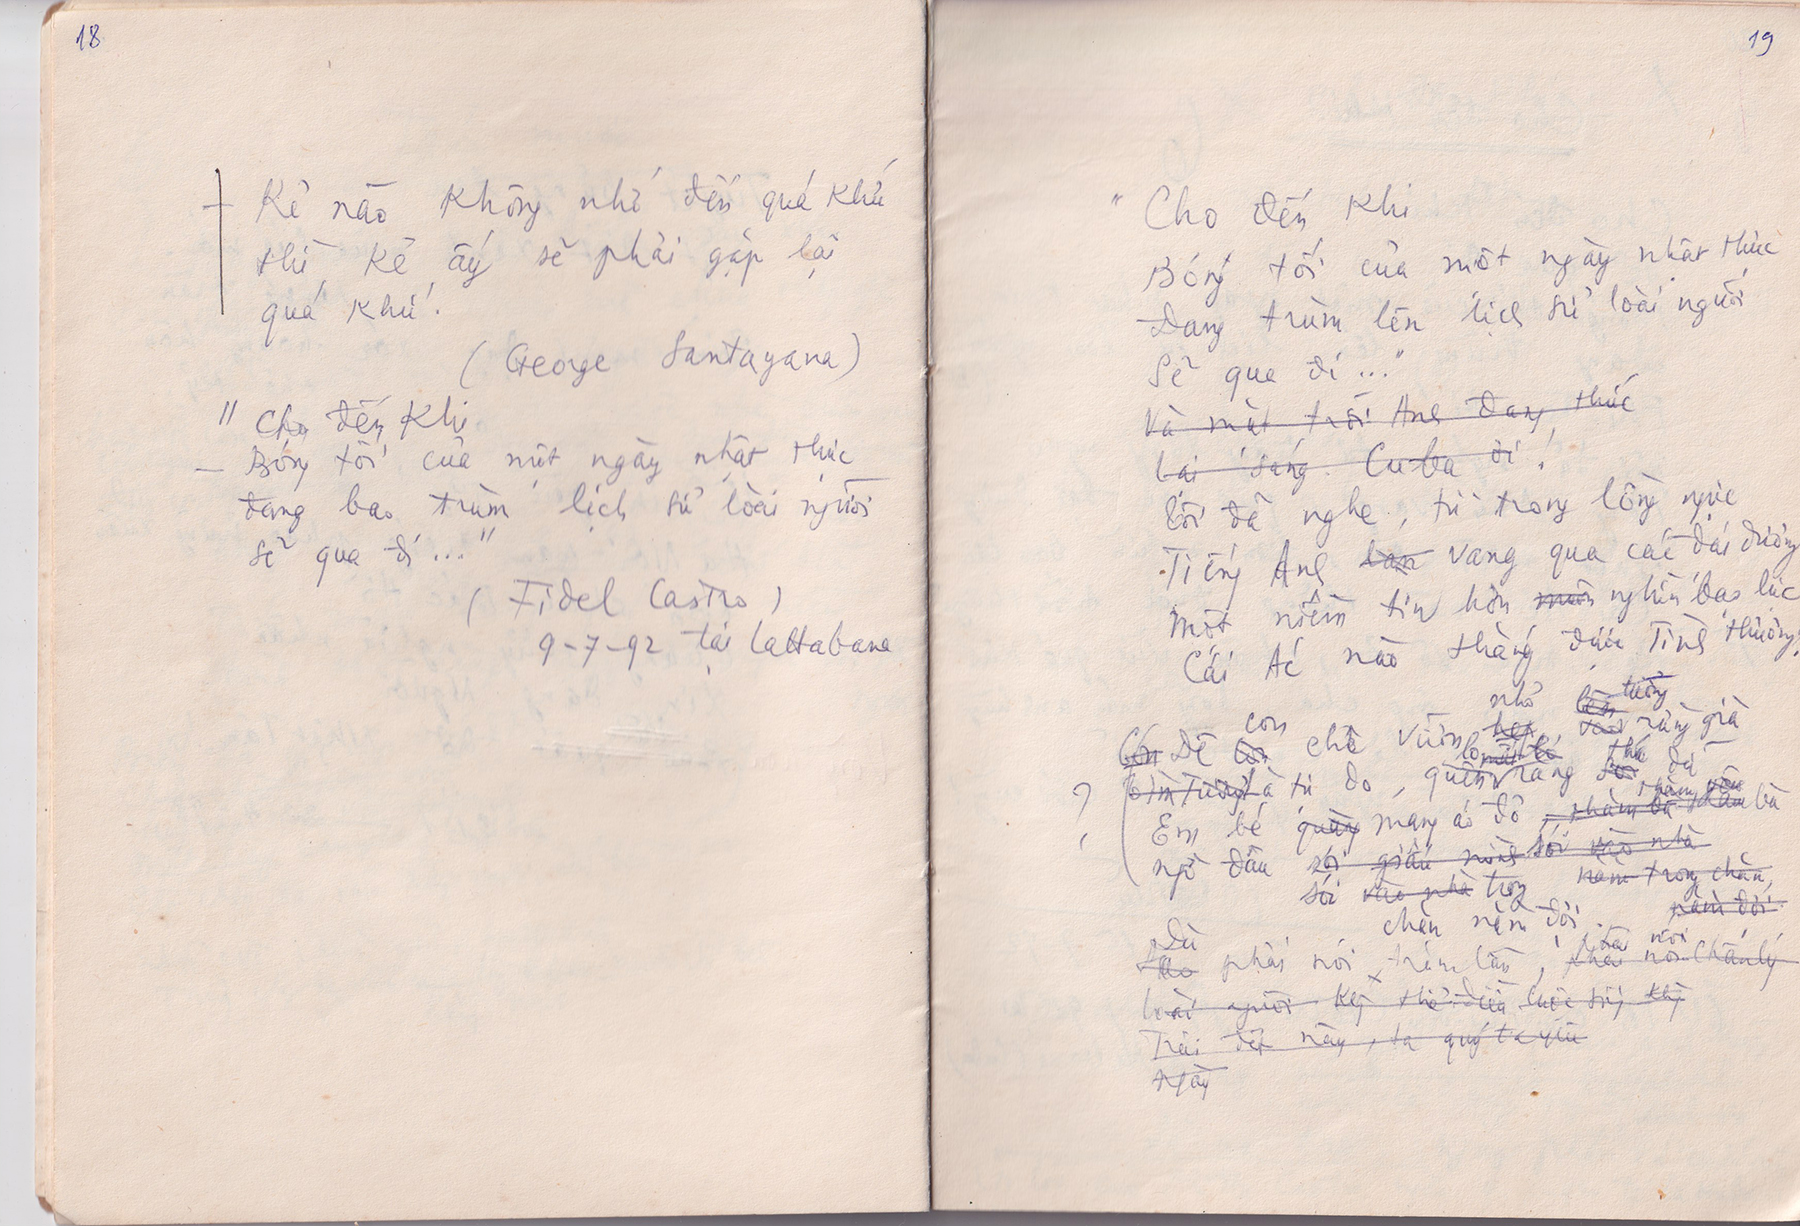 18
Kẻ nào không nhớ đến quá khứ
thì kẻ ấy sẽ phải gặp lại
quá khứ.
(George Santayana)
" Cho đến khi
– Bóng tối của một ngày nhật thực
đang bao trùm lịch sử loài người
sẽ qua đi ..."
(Fidel Castro)
9-7-92 tại LaHabana
19
" Cho đến khi
Bóng tối của một ngày nhật thực
Đang trùm lên lịch sử loài người
Sẽ qua đi ..."
Và mặt trời Anh đang thức
lại sáng. Cuba ơi!
Tôi đã nghe, từ trong lồng ngực
Tiếng Anh vang qua các đại dương
Một niềm tin hơn nghìn bạo lực
Cái Ác nào thắng được Tình thương.
nhỏ tưởng
con
Để chê vườn rừng già
là tự do, quên rằng đá
?
Em bé quàng mang áo đỏ
ngờ đâu sói
sói vào nhà trong nằm trong chăn,
chăn nằm đợi. nằm đợi
Dù
phải nói trăm lần, chân lý
loài người
Trái đất này, ta quý ta yêu
Ngày